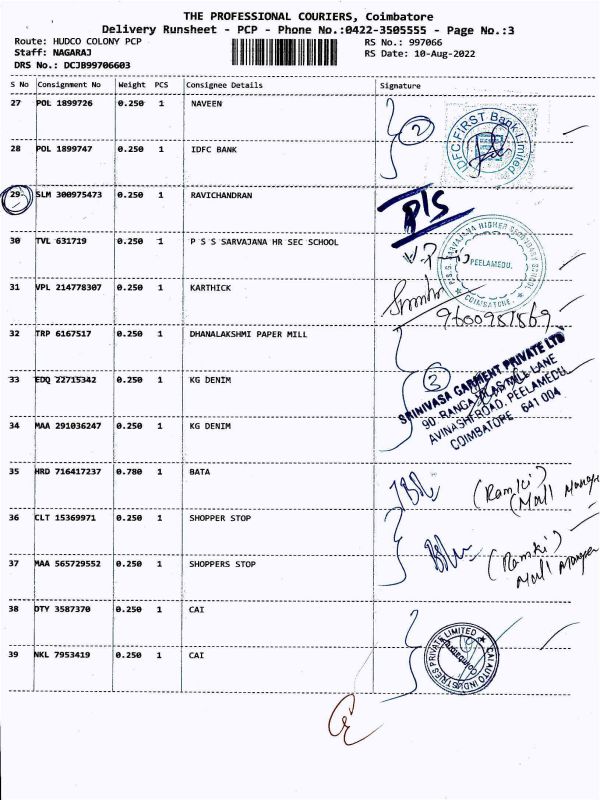 THE PROFESSIONAL COURIERS, Coimbatore
Delivery Runsheet - PCP - Phone No.:0422-3505555 - Page No.:3
Route: HUDCO COLONY PCP RS No.: 997066
Staff: NAGARAJ RS Date: 10-Aug-2022
DRS No.: DCJB99706603
S No Consignment No Weight PCS Consignee Details Signature
27 POL 1899726 0.250 1 NAVEEN
2
28 POL 1899747 0.250 1 IDFC BANK
IDFC FIRST Bank Limited
29 SLM 300975473 0.250 1 RAVICHANDRAN
P/S
30 TVL 631719 0.250 1 P S S SARVAJANA HR SEC SCHOOL
P.S.G. SARVAJANA HIGHER SECONDARY SCHOOL
PEELAMEDU.
COIMBATORE.
31 VPL 214778307 0.250 1 KARTHICK
9600951569
32 TRP 6167517 0.250 1 DHANALAKSHMI PAPER MILL
33 EDQ 22715342 0.250 1 KG DENIM
3
SRINIVASA GARMENT PRIVATE LTD
90, RANGA VILAS MILL LANE
AVINASHI ROAD, PEELAMEDU,
COIMBATORE 641 004
34 MAA 291036247 0.250 1 KG DENIM
35 HRD 716417237 0.780 1 BATA
(Ramki)
(Mall Manager
36 CLT 15369971 0.250 1 SHOPPER STOP
37 MAA 565729552 0.250 1 SHOPPERS STOP
(Ramki)
Mall Manager
38 OTY 3587370 0.250 1 CAI
39 NKL 7953419 0.250 1 CAI
CAI AUTO INDUSTRIES PRIVATE LIMITED
Coimbatore